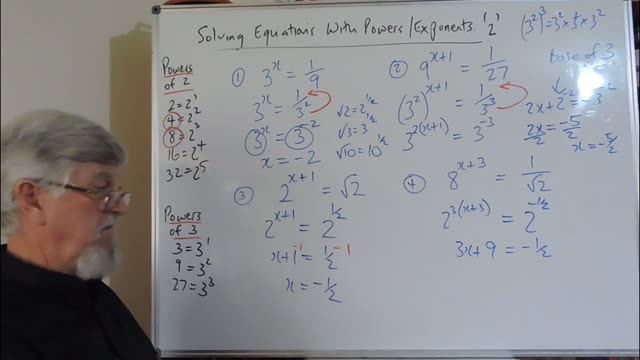 Solving Equations With Powers/Exponents '2'
(3²)³ = 3² × 3² × 3²
Powers
of 2
2 = 2¹
4 = 2²
8 = 2³
16 = 2⁴
32 = 2⁵
Powers
of 3
3 = 3¹
9 = 3²
27 = 3³
① 3ˣ = 1/9
3ˣ = 1/3²
3ˣ = 3⁻²
x = -2
√2 = 2^½
√3 = 3^½
√10 = 10^½
② 9ˣ⁺¹ = 1/27
(3²)ˣ⁺¹ = 1/3³
3²⁽ˣ⁺¹⁾ = 3⁻³
base of 3
2x + 2 = -3
2x/2 = -5/2
x = -5/2
③ 2ˣ⁺¹ = √2
2ˣ⁺¹ = 2^½
x + 1 - 1 = ½ - 1
x = -½
④ 8ˣ⁺³ = 1/√2
2³⁽ˣ⁺³⁾ = 2^-½
3x + 9 = -½